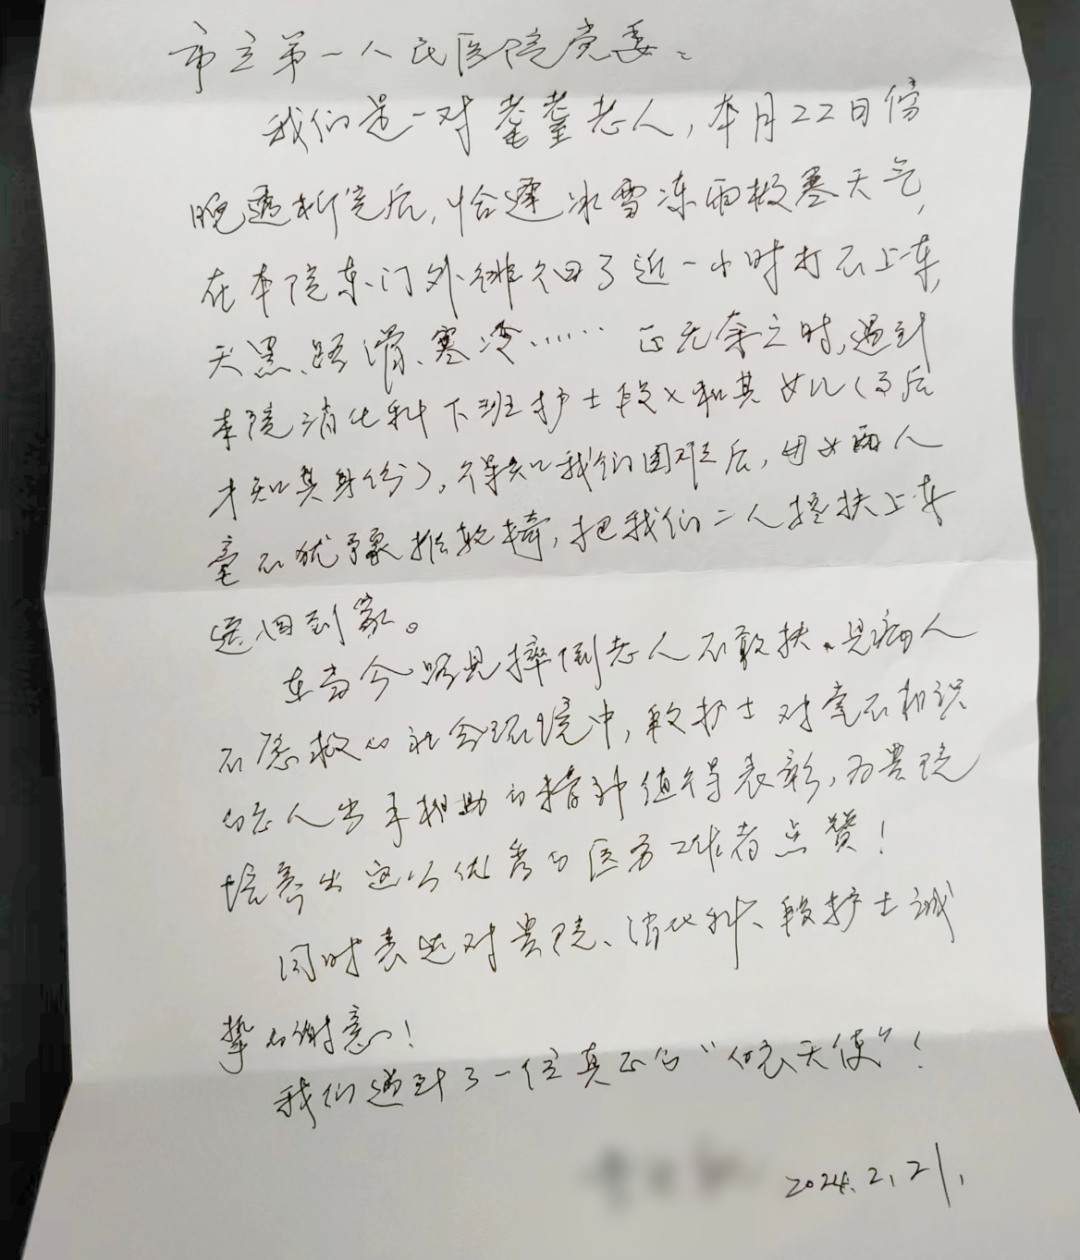 市立第一人民医院党委：
我们是一对耄耋老人，本月22日傍
晚透析完后，恰逢冰雪冻雨极寒天气，
在本院东门外徘徊了近一小时打不上车，
天黑、路滑、寒冷…… 正无奈之时，遇到
本院消化科下班护士段×和其女儿（事后
才知其身份），得知我们困难后，母女两人
毫不犹豫推轮椅，把我们二人搀扶上车
送回到家。
在当今路见摔倒老人不敢扶、见病人
不愿救的社会环境中，段护士对毫不相识
的老人出手相助的精神值得表彰，为贵院
培养出这么优秀的医务工作者点赞！
同时表达对贵院、消化科、段护士诚
挚的谢意！
我们遇到了一位真正的“白衣天使”！
2024.2.21.